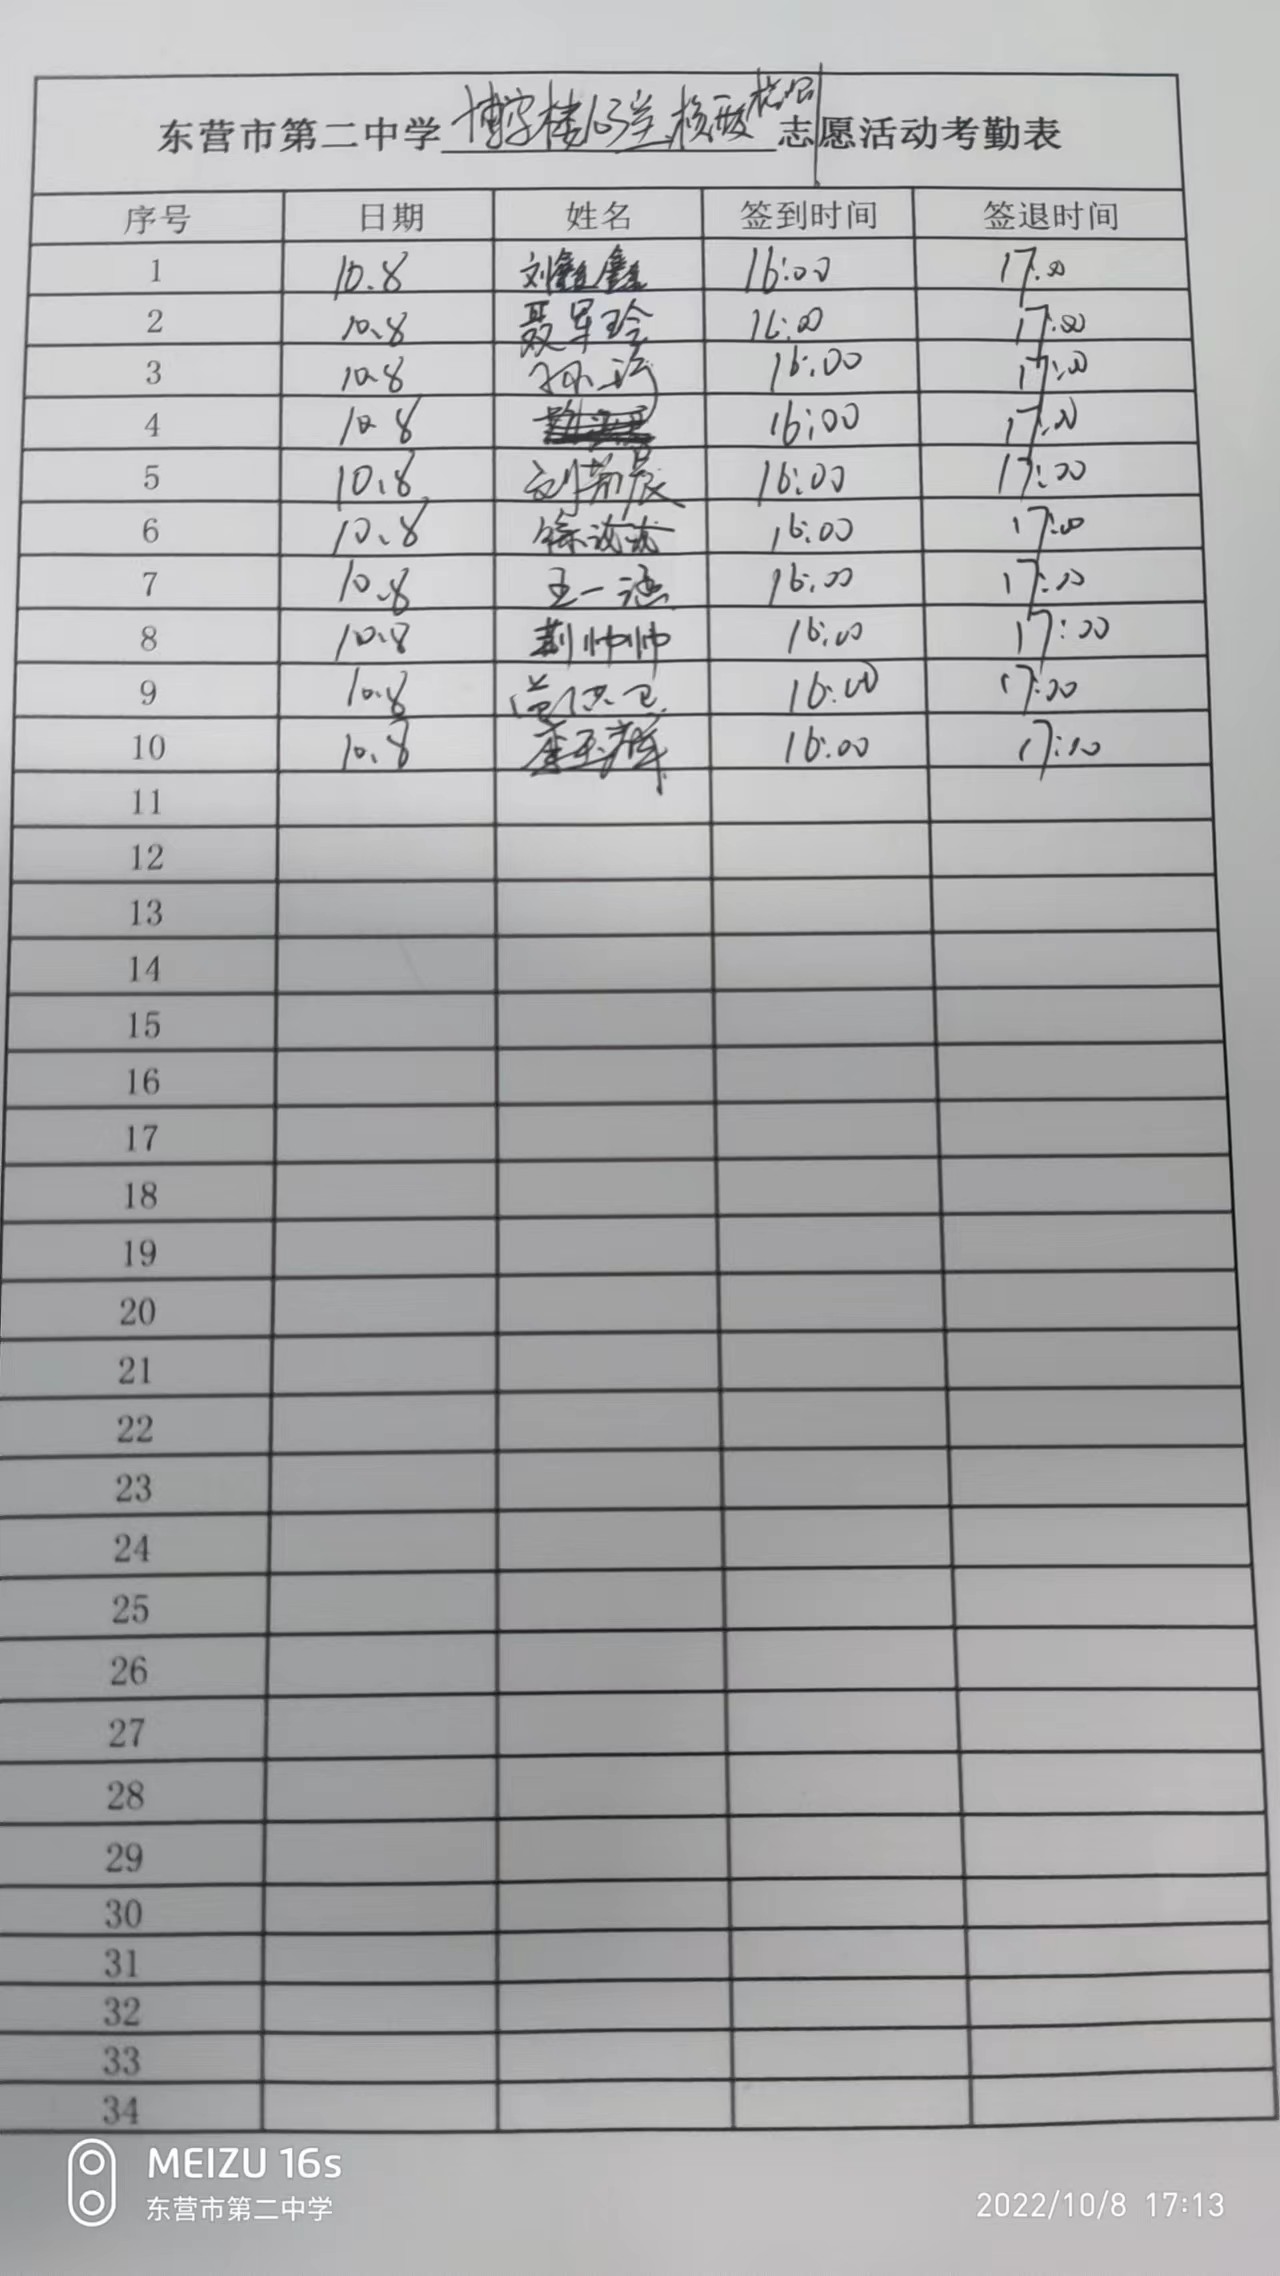 东营市第二中学博学楼 核酸检测志愿活动考勤表
序号 日期 姓名 签到时间 签退时间
1 10.8 刘鑫鑫 16:00 17:00
2 10.8 聂军玲 16:00 17:00
3 10.8 16:00 17:00
4 10.8 16:00 17:00
5 10.8 刘芳辰 16:00 17:00
6 10.8 徐 16:00 17:00
7 10.8 王一涵 16:00 17:00
8 10.8 荆帅帅 16:00 17:00
9 10.8 16:00 17:00
10 10.8 16:00 17:10
11
12
13
14
15
16
17
18
19
20
21
22
23
24
25
26
27
28
29
30
31
32
33
34
MEIZU 16s
东营市第二中学
2022/10/8 17:13